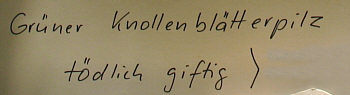 Grüner Knollenblätterpilz
tödlich giftig )